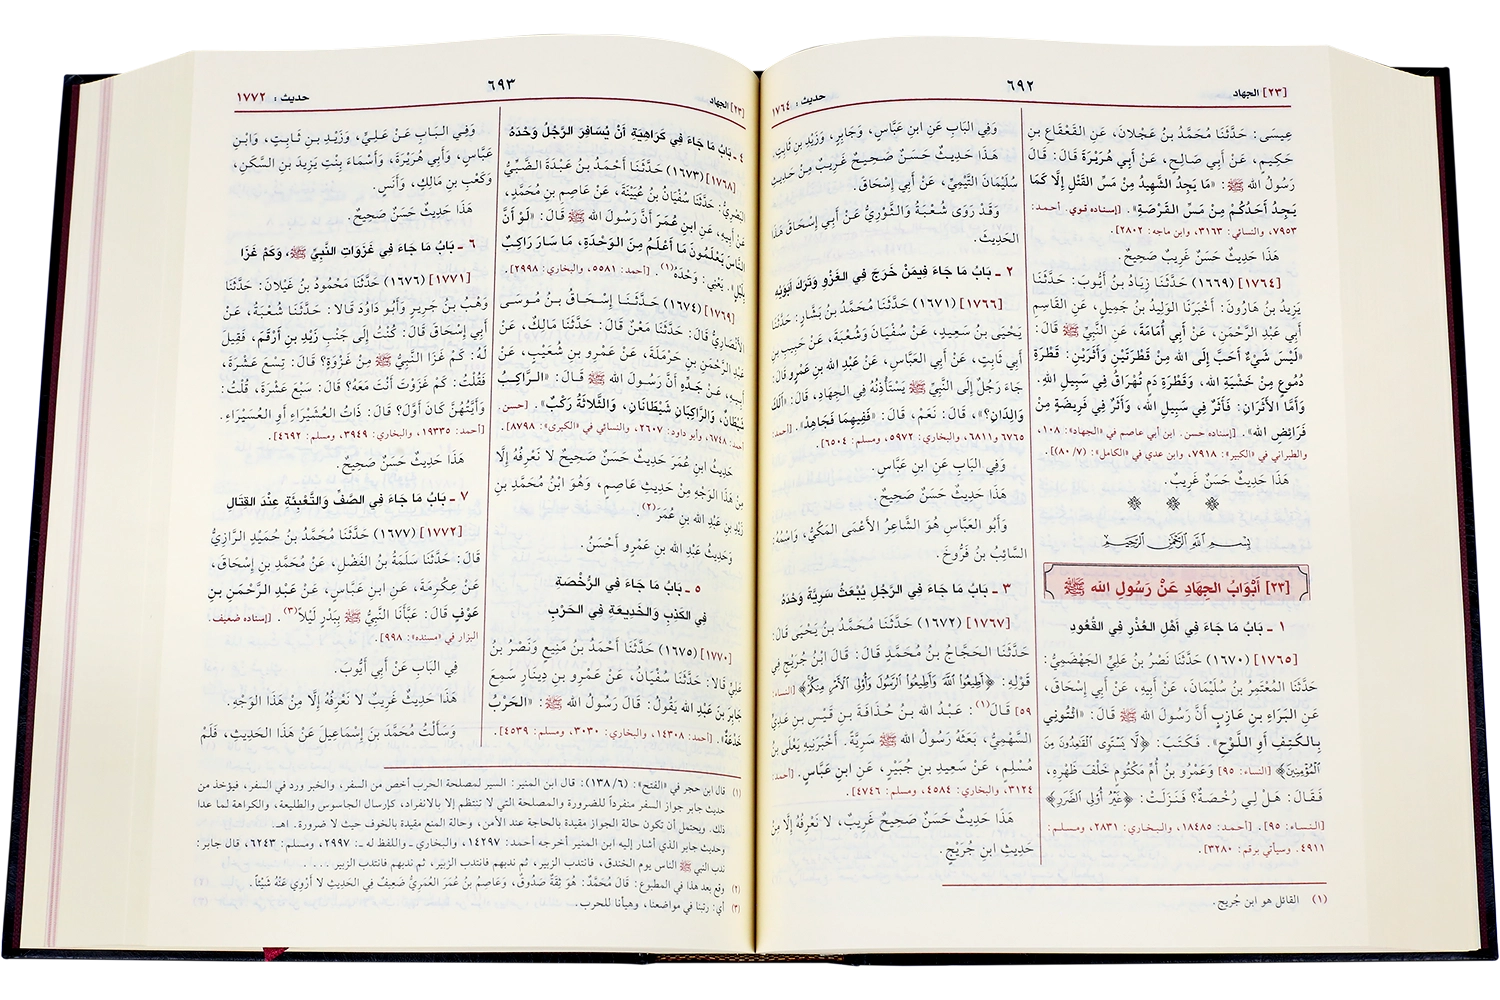 [٢٣] الجهاد
٦٩٢
حديث : ١٧٦٤
عِيسَى: حَدَّثَنَا مُحَمَّدُ بنُ عَجْلَانَ، عَنِ القَعْقَاعِ بنِ
حَكِيمٍ، عَنْ أَبِي صَالِحٍ، عَنْ أَبِي هُرَيْرَةَ قَالَ: قَالَ
رَسُولُ الله ﷺ: «مَا يَجِدُ الشَّهِيدُ مِنْ مَسِّ القَتْلِ إِلَّا كَمَا
يَجِدُ أَحَدُكُمْ مِنْ مَسِّ القَرْصَةِ». [إسناده قوي. أحمد:
٧٩٥٣، والنسائي: ٣١٦٣، وابن ماجه: ٢٨٠٢].
هَذَا حَدِيثٌ حَسَنٌ غَرِيبٌ صَحِيحٌ.
[١٧٦٤] (١٦٦٩) حَدَّثَنَا زِيَادُ بنُ أَيُّوبَ: حَدَّثَنَا
يَزِيدُ بنُ هَارُونَ: أَخْبَرَنَا الوَلِيدُ بنُ جَمِيلٍ، عَنِ القَاسِمِ
أَبِي عَبْدِ الرَّحْمَنِ، عَنْ أَبِي أُمَامَةَ، عَنِ النَّبِيِّ ﷺ قَالَ:
«لَيْسَ شَيْءٌ أَحَبَّ إِلَى الله مِنْ قَطْرَتَيْنِ وَأَثَرَيْنِ: قَطْرَةِ
دُمُوعٍ مِنْ خَشْيَةِ الله، وَقَطْرَةِ دَمٍ تُهْرَاقُ فِي سَبِيلِ الله.
وَأَمَّا الأَثَرَانِ: فَأَثَرٌ فِي سَبِيلِ الله، وَأَثَرٌ فِي فَرِيضَةٍ مِنْ
فَرَائِضِ الله». [إسناده حسن. ابن أبي عاصم في «الجهاد»: ١٠٨،
والطبراني في «الكبير»: ٧٩١٨، وابن عدي في «الكامل»: (٨٠/٧)].
هَذَا حَدِيثٌ حَسَنٌ غَرِيبٌ.
بِسْمِ اللهِ الرَّحْمَنِ الرَّحِيمِ
[٢٣] أَبْوَابُ الجِهَادِ عَنْ رَسُولِ الله ﷺ
١ ـ بَابُ مَا جَاءَ فِي أَهْلِ العُذْرِ فِي القُعُودِ
[١٧٦٥] (١٦٧٠) حَدَّثَنَا نَصْرُ بنُ عَلِيٍّ الجَهْضَمِيُّ:
حَدَّثَنَا المُعْتَمِرُ بنُ سُلَيْمَانَ، عَنْ أَبِيهِ، عَنْ أَبِي إِسْحَاقَ،
عَنِ البَرَاءِ بنِ عَازِبٍ أَنَّ رَسُولَ الله ﷺ قَالَ: «ائْتُونِي
بِالكَتِفِ أَوِ اللَّوْحِ». فَكَتَبَ: ﴿لَّا يَسْتَوِى الْقَاعِدُونَ مِنَ
الْمُؤْمِنِينَ﴾ [النساء: ٩٥] وَعَمْرُو بنُ أُمِّ مَكْتُومٍ خَلْفَ ظَهْرِهِ،
فَقَالَ: هَلْ لِي رُخْصَةٌ؟ فَنَزَلَتْ: ﴿غَيْرُ أُوْلِى الضَّرَرِ﴾
[النساء: ٩٥]. [أحمد: ١٨٤٨٥، والبخاري: ٢٨٣١، ومسلم:
٤٩١١. وسيأتي برقم: ٣٢٨٠].
وَفِي البَابِ عَنِ ابنِ عَبَّاسٍ، وَجَابِرٍ، وَزَيْدِ بنِ ثَابِتٍ.
هَذَا حَدِيثٌ حَسَنٌ صَحِيحٌ غَرِيبٌ مِنْ حَدِيثِ
سُلَيْمَانَ التَّيْمِيِّ، عَنْ أَبِي إِسْحَاقَ.
وَقَدْ رَوَى شُعْبَةُ وَالثَّوْرِيُّ عَنْ أَبِي إِسْحَاقَ هَذَا
الحَدِيثَ.
٢ ـ بَابُ مَا جَاءَ فِيمَنْ خَرَجَ فِي الغَزْوِ وَتَرَكَ أَبَوَيْهِ
[١٧٦٦] (١٦٧١) حَدَّثَنَا مُحَمَّدُ بنُ بَشَّارٍ: حَدَّثَنَا
يَحْيَى بنُ سَعِيدٍ، عَنْ سُفْيَانَ وَشُعْبَةَ، عَنْ حَبِيبِ بنِ
أَبِي ثَابِتٍ، عَنْ أَبِي العَبَّاسِ، عَنْ عَبْدِ الله بنِ عَمْرٍو قَالَ:
جَاءَ رَجُلٌ إِلَى النَّبِيِّ ﷺ يَسْتَأْذِنُهُ فِي الجِهَادِ، قَالَ: «أَلَكَ
وَالِدَانِ؟»، قَالَ: نَعَمْ، قَالَ: «فَفِيهِمَا فَجَاهِدْ». [أحمد:
٦٧٦٥ و٦٨١١، والبخاري: ٥٩٧٢، ومسلم: ٦٥٠٤].
وَفِي البَابِ عَنِ ابنِ عَبَّاسٍ.
هَذَا حَدِيثٌ حَسَنٌ صَحِيحٌ.
وَأَبُو العَبَّاسِ هُوَ الشَّاعِرُ الأَعْمَى المَكِّيُّ، وَاسْمُهُ:
السَّائِبُ بنُ فَرُّوخَ.
٣ ـ بَابُ مَا جَاءَ فِي الرَّجُلِ يُبْعَثُ سَرِيَّةً وَحْدَهُ
[١٧٦٧] (١٦٧٢) حَدَّثَنَا مُحَمَّدُ بنُ يَحْيَى قَالَ:
حَدَّثَنَا الحَجَّاجُ بنُ مُحَمَّدٍ قَالَ: قَالَ ابْنُ جُرَيْجٍ فِي
قَوْلِهِ: ﴿أَطِيعُوا اللَّهَ وَأَطِيعُوا الرَّسُولَ وَأُوْلِى الْأَمْرِ مِنكُمْ﴾ [النساء:
٥٩] قَالَ(١): عَبْدُ الله بنُ حُذَافَةَ بنِ قَيْسِ بنِ عَدِيٍّ
السَّهْمِيُّ، بَعَثَهُ رَسُولُ الله ﷺ سَرِيَّةً. أَخْبَرَنِيهِ يَعْلَى بنُ
مُسْلِمٍ، عَنْ سَعِيدِ بنِ جُبَيْرٍ، عَنِ ابنِ عَبَّاسٍ. [أحمد:
٣١٢٤، والبخاري: ٤٥٨٤، ومسلم: ٤٧٤٦].
هَذَا حَدِيثٌ حَسَنٌ صَحِيحٌ غَرِيبٌ، لَا نَعْرِفُهُ إِلَّا مِنْ
حَدِيثِ ابنِ جُرَيْجٍ.
(١) القائل هو ابن جُريج.
[٢٣] الجهاد
٦٩٣
حديث : ١٧٧٢
٤ ـ بَابُ مَا جَاءَ فِي كَرَاهِيَةِ أَنْ يُسَافِرَ الرَّجُلُ وَحْدَهُ
[١٧٦٨] (١٦٧٣) حَدَّثَنَا أَحْمَدُ بنُ عَبْدَةَ الضَّبِّيُّ
البَصْرِيُّ: حَدَّثَنَا سُفْيَانُ بنُ عُيَيْنَةَ، عَنْ عَاصِمِ بنِ مُحَمَّدٍ،
عَنْ أَبِيهِ، عَنِ ابنِ عُمَرَ أَنَّ رَسُولَ الله ﷺ قَالَ: «لَوْ أَنَّ
النَّاسَ يَعْلَمُونَ مَا أَعْلَمُ مِنَ الوَحْدَةِ، مَا سَارَ رَاكِبٌ
بِلَيْلٍ». يَعْنِي: وَحْدَهُ(١). [أحمد: ٥٥٨١، والبخاري: ٢٩٩٨].
[١٧٦٩] (١٦٧٤) حَدَّثَنَا إِسْحَاقُ بنُ مُوسَى
الأَنْصَارِيُّ قَالَ: حَدَّثَنَا مَعْنٌ قَالَ: حَدَّثَنَا مَالِكٌ، عَنْ
عَبْدِ الرَّحْمَنِ بنِ حَرْمَلَةَ، عَنْ عَمْرِو بنِ شُعَيْبٍ، عَنْ
أَبِيهِ، عَنْ جَدِّهِ أَنَّ رَسُولَ الله ﷺ قَالَ: «الرَّاكِبُ
شَيْطَانٌ، وَالرَّاكِبَانِ شَيْطَانَانِ، وَالثَّلَاثَةُ رَكْبٌ». [حسن.
أحمد: ٦٧٤٨، وأبو داود: ٢٦٠٧، والنسائي في «الكبرى»: ٨٧٩٨].
حَدِيثُ ابنِ عُمَرَ حَدِيثٌ حَسَنٌ صَحِيحٌ لَا نَعْرِفُهُ إِلَّا
مِنْ هَذَا الوَجْهِ مِنْ حَدِيثِ عَاصِمٍ، وَهُوَ ابْنُ مُحَمَّدِ بنِ
زَيْدِ بنِ عَبْدِ الله بنِ عُمَرَ(٢).
وَحَدِيثُ عَبْدِ الله بنِ عَمْرٍو أَحْسَنُ.
٥ ـ بَابُ مَا جَاءَ فِي الرُّخْصَةِ
فِي الكَذِبِ وَالخَدِيعَةِ فِي الحَرْبِ
[١٧٧٠] (١٦٧٥) حَدَّثَنَا أَحْمَدُ بنُ مَنِيعٍ وَنَصْرُ بنُ
عَلِيٍّ قَالَا: حَدَّثَنَا سُفْيَانُ، عَنْ عَمْرِو بنِ دِينَارٍ سَمِعَ
جَابِرَ بنَ عَبْدِ الله يَقُولُ: قَالَ رَسُولُ الله ﷺ: «الحَرْبُ
خَدْعَةٌ». [أحمد: ١٤٣٠٨، والبخاري: ٣٠٣٠، ومسلم: ٤٥٣٩].
وَفِي البَابِ عَنْ عَلِيٍّ، وَزَيْدِ بنِ ثَابِتٍ، وَابْنِ
عَبَّاسٍ، وَأَبِي هُرَيْرَةَ، وَأَسْمَاءَ بِنْتِ يَزِيدَ بنِ السَّكَنِ،
وَكَعْبِ بنِ مَالِكٍ، وَأَنَسٍ.
هَذَا حَدِيثٌ حَسَنٌ صَحِيحٌ.
٦ ـ بَابُ مَا جَاءَ فِي غَزَوَاتِ النَّبِيِّ ﷺ، وَكَمْ غَزَا
[١٧٧١] (١٦٧٦) حَدَّثَنَا مَحْمُودُ بنُ غَيْلَانَ: حَدَّثَنَا
وَهْبُ بنُ جَرِيرٍ وَأَبُو دَاوُدَ قَالَا: حَدَّثَنَا شُعْبَةُ، عَنْ
أَبِي إِسْحَاقَ قَالَ: كُنْتُ إِلَى جَنْبِ زَيْدِ بنِ أَرْقَمَ، فَقِيلَ
لَهُ: كَمْ غَزَا النَّبِيُّ ﷺ مِنْ غَزْوَةٍ؟ قَالَ: تِسْعَ عَشْرَةَ،
فَقُلْتُ: كَمْ غَزَوْتَ أَنْتَ مَعَهُ؟ قَالَ: سَبْعَ عَشْرَةَ، قُلْتُ:
وَأَيَّتُهُنَّ كَانَ أَوَّلَ؟ قَالَ: ذَاتُ العُشَيْرَاءِ أَوِ العُسَيْرَاءِ.
[أحمد: ١٩٣٣٥، والبخاري: ٣٩٤٩، ومسلم: ٤٦٩٢].
هَذَا حَدِيثٌ حَسَنٌ صَحِيحٌ.
٧ ـ بَابُ مَا جَاءَ فِي الصَّفِّ وَالتَّعْبِئَةِ عِنْدَ القِتَالِ
[١٧٧٢] (١٦٧٧) حَدَّثَنَا مُحَمَّدُ بنُ حُمَيْدٍ الرَّازِيُّ
قَالَ: حَدَّثَنَا سَلَمَةُ بنُ الفَضْلِ، عَنْ مُحَمَّدِ بنِ إِسْحَاقَ،
عَنْ عِكْرِمَةَ، عَنِ ابنِ عَبَّاسٍ، عَنْ عَبْدِ الرَّحْمَنِ بنِ
عَوْفٍ قَالَ: عَبَّأَنَا النَّبِيُّ ﷺ بِبَدْرٍ لَيْلاً(٣). [إسناده ضعيف.
البزار في «مسنده»: ٩٩٨].
فِي البَابِ عَنْ أَبِي أَيُّوبَ.
هَذَا حَدِيثٌ غَرِيبٌ لَا نَعْرِفُهُ إِلَّا مِنْ هَذَا الوَجْهِ.
وَسَأَلْتُ مُحَمَّدَ بنَ إِسْمَاعِيلَ عَنْ هَذَا الحَدِيثِ، فَلَمْ
(١) قال ابن حجر في «الفتح»: (١٣٨/٦): قال ابن المنير: السير لمصلحة الحرب أخص من السفر، والخبر ورد في السفر، فيؤخذ من
حديث جابر جواز السفر منفرداً للضرورة والمصلحة التي لا تنتظم إلا بالانفراد، كإرسال الجاسوس والطليعة، والكراهة لما عدا
ذلك. ويحتمل أن تكون حالة الجواز مقيدة بالحاجة عند الأمن، وحالة المنع مقيدة بالخوف حيث لا ضرورة. اهـ.
وحديث جابر الذي أشار إليه ابن المنير أخرجه أحمد: ١٤٢٩٧، والبخاري ـ واللفظ له ـ: ٢٩٩٧، ومسلم: ٦٢٤٣، قال جابر:
ندب النبي ﷺ الناس يوم الخندق، فانتدب الزبير، ثم ندبهم فانتدب الزبير، ثم ندبهم فانتدب الزبير ....
(٢) وقع بعد هذا في المطبوع: قَالَ مُحَمَّدٌ: هُوَ ثِقَةٌ صَدُوقٌ، وَعَاصِمُ بنُ عُمَرَ العُمَرِيُّ ضَعِيفٌ فِي الحَدِيثِ لَا أَرْوِي عَنْهُ شَيْئاً.
(٣) أي: رتبنا في مواضعنا، وهيأنا للحرب.